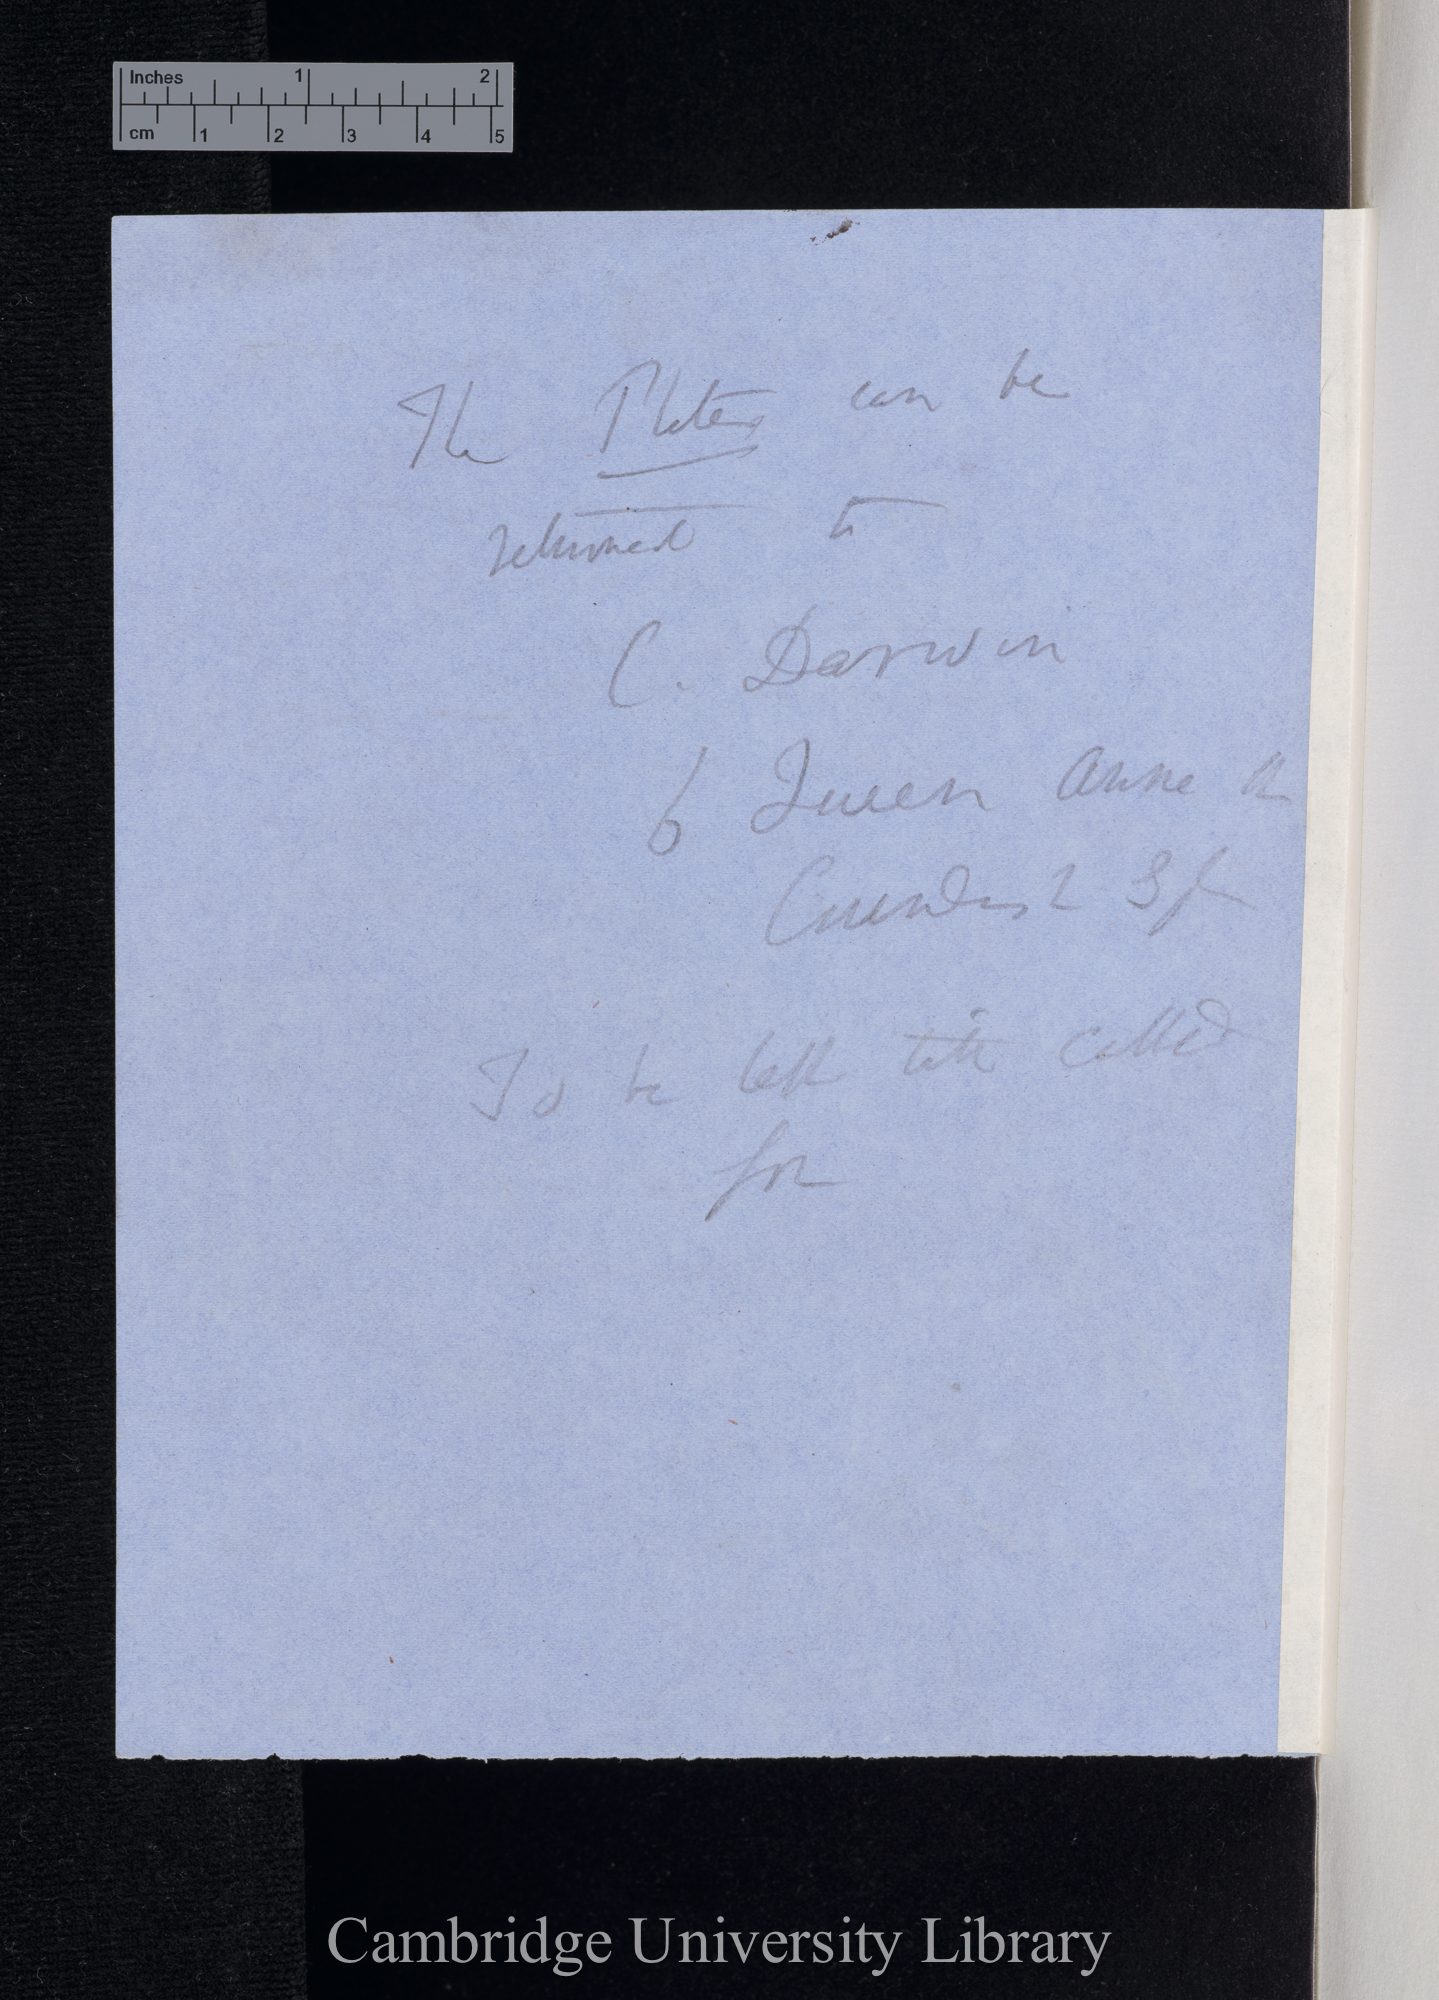 Inches 1 2
cm 1 2 3 4 5
The Plates can be
returned to
C. Darwin
6 Queen Anne St
Cavendish Sqr
To be left till called
for
Cambridge University Library